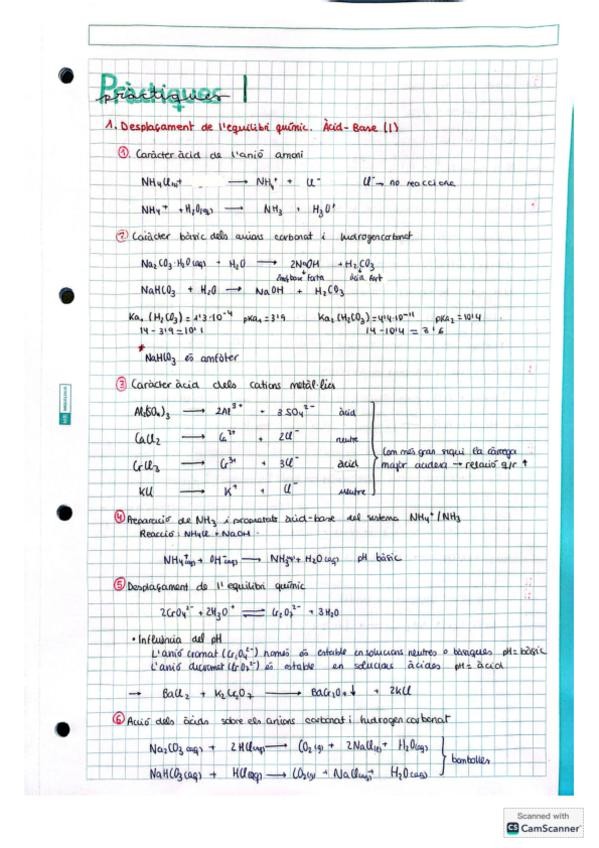 Pràctiques 1
pràctiques
1. Desplaçament de l'equilibri químic. Àcid-Base (I)
① Caràcter àcid de l'anió amoni
NH4Cl(s)+ → NH4+ + Cl- Cl- → no reacciona
NH4+ + H2O(aq) → NH3 + H3O+
② Caràcter bàsic dels anions carbonat i hidrogencarbonat
Na2CO3·H2O(aq) + H2O → 2NaOH + H2CO3
base forta àcid
NaHCO3 + H2O → NaOH + H2CO3
Ka1 (H2CO3) = 1'3·10-4 pKa1 = 3'9 Ka2 (H2CO3) = 4'4·10-11 pKa2 = 10'4
14 - 3'9 = 10'1 14 - 10'4 = 3'6
* NaHCO3 és amfòter
③ Caràcter àcid dels cations metàl·lics
Al2(SO4)3 → 2Al3+ + 3SO42- àcid
CaCl2 → Ca2+ + 2Cl- neutre
CrCl3 → Cr3+ + 3Cl- àcid
KCl → K+ + Cl- neutre
Com més gran sigui la càrrega
major acidesa → relació q/r ↑
④ Preparació de NH3 i propietats àcid-base del sistema NH4+/NH3
Reacció: NH4Cl + NaOH
NH4+(aq) + OH-(aq) → NH3 + H2O(aq) pH bàsic
⑤ Desplaçament de l'equilibri químic
2CrO42- + 2H3O+ ⇌ Cr2O72- + 3H2O
• Influència del pH
L'anió cromat (Cr2O42-) només és estable en solucions neutres o bàsiques pH = bàsic
L'anió dicromat és estable en solucions àcides pH = àcid
→ BaCl2 + K2Cr2O7 → BaCr2O7↓ + 2KCl
⑥ Acció dels àcids sobre els anions carbonat i hidrogencarbonat
Na2CO3(aq) + 2HCl(aq) → CO2(g) + 2NaCl + H2O(aq)
NaHCO3(aq) + HCl(aq) → CO2(g) + NaCl + H2O(aq)
bombolles
Scanned with
CS CamScanner